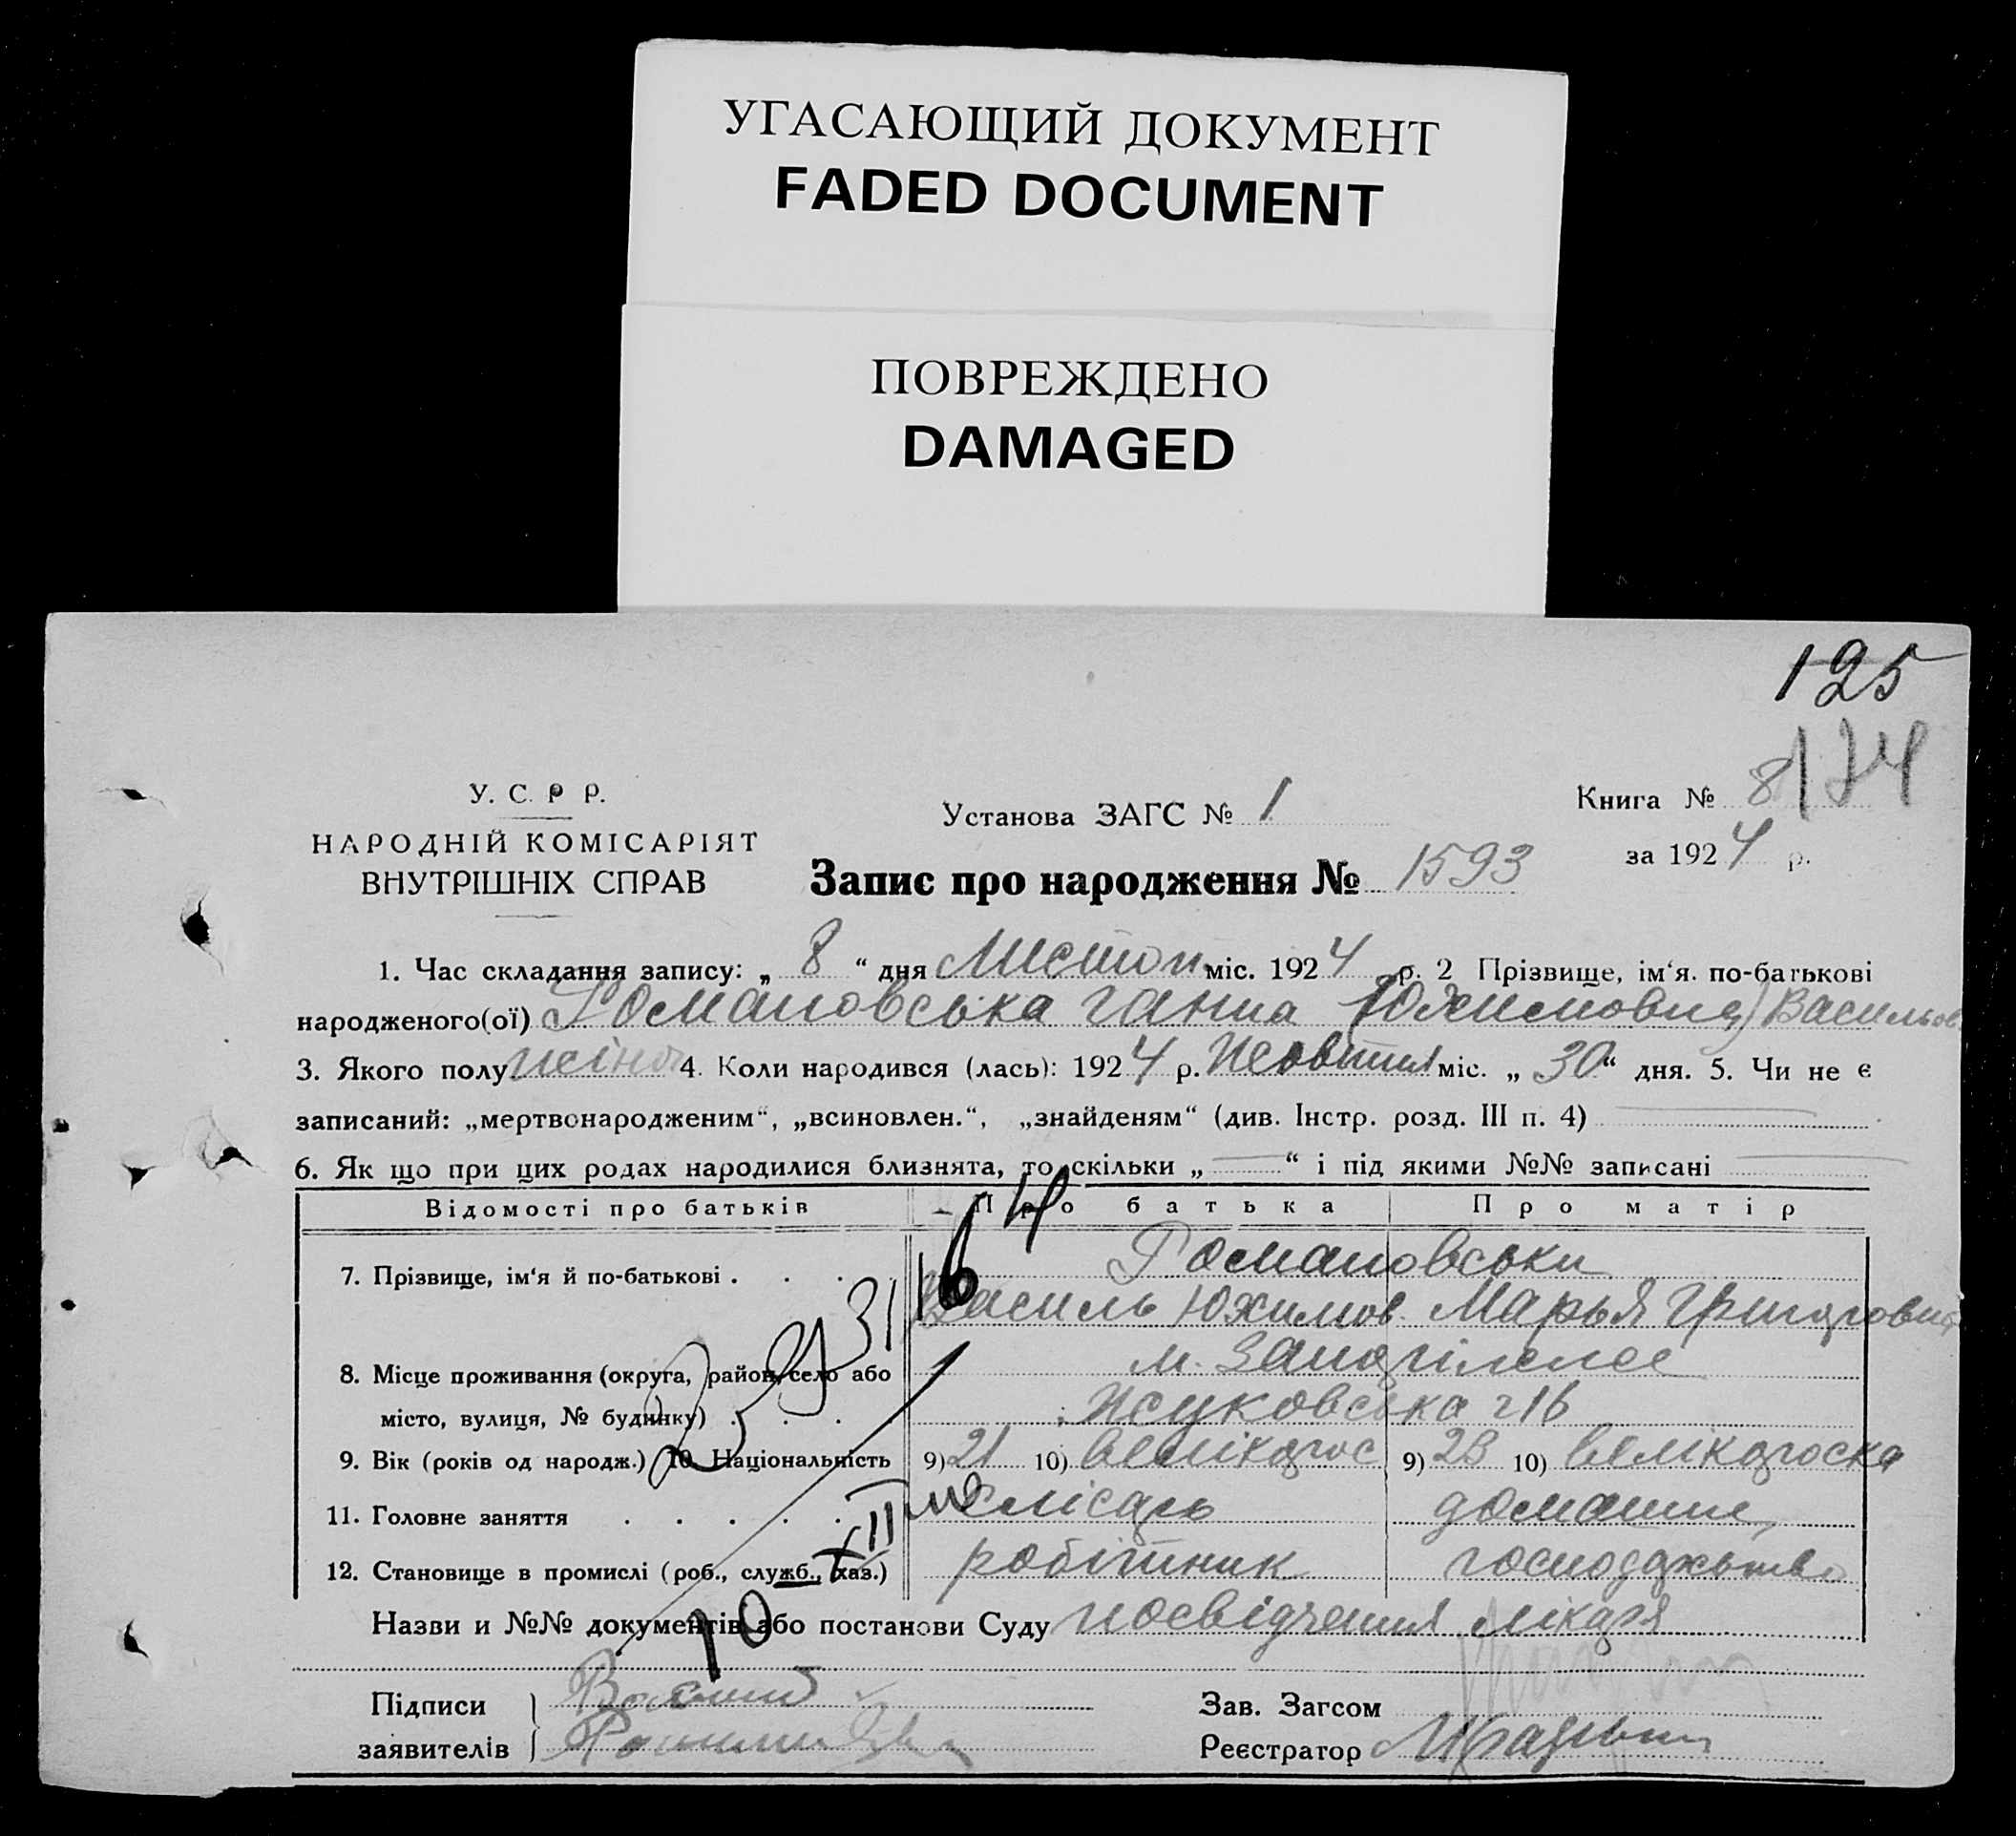 УГАСАЮЩИЙ ДОКУМЕНТ
FADED DOCUMENT
ПОВРЕЖДЕНО
DAMAGED
125
У. С. Р Р.
НАРОДНІЙ КОМІСАРІЯТ
ВНУТРІШНІХ СПРАВ
Установа ЗАГС № 1
Книга № 8
за 1924 р.
Запис про народження № 1593
1. Час складання запису: „ 8 “ дня Листоп. міс. 1924 р. 2 Прізвище, ім‘я. по-батькові
народженого(ої) Романовська Ганна (Юхимовна) Васильов.
3. Якого полу жіно 4. Коли народився (лась): 1924 р. Жовтня міс. „ 30 “ дня. 5. Чи не є
записаний: „мертвонародженим“, „всиновлен.“, „знайденям“ (див. Інстр. розд. III п. 4)
6. Як що при цих родах народилися близнята, то скільки „ — “ і під якими №№ записані —
Відомості про батьків Про батька Про матір
7. Прізвище, ім‘я й по-батькові . . . Романовськи
Василь Юхимов. Марья Григоровна
8. Місце проживання (округа, район, село або м.
місто, вулиця, № будинку) . . . . Жуковська 216
9. Вік (років од народж.) 10 Національність 9) 21 10) великорос 9) 23 10) великороска
11. Головне заняття . . . . . слісарь домашнє
12. Становище в промислі (роб., служб., хаз.) робітник
Назви и №№ документів або постанови Суду посвідчення лікаря
Підписи
заявителів
Зав. Загсом
Реєстратор